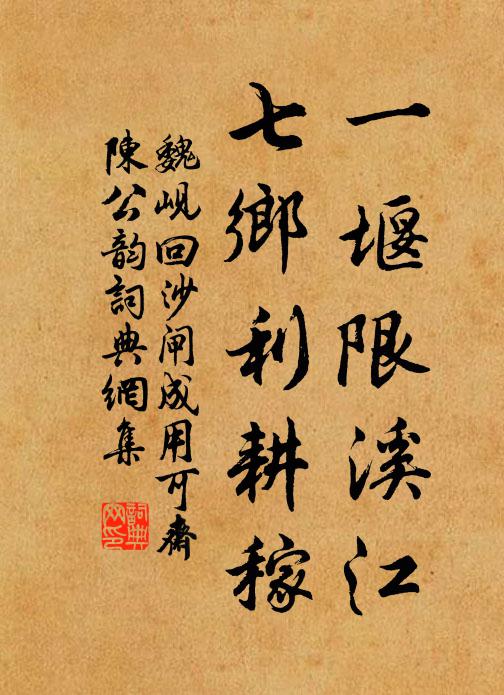 一堰限溪江
七鄉利耕稼
魏峴回沙闸成用可齋
陳公韵詞典網集
詞典
网印